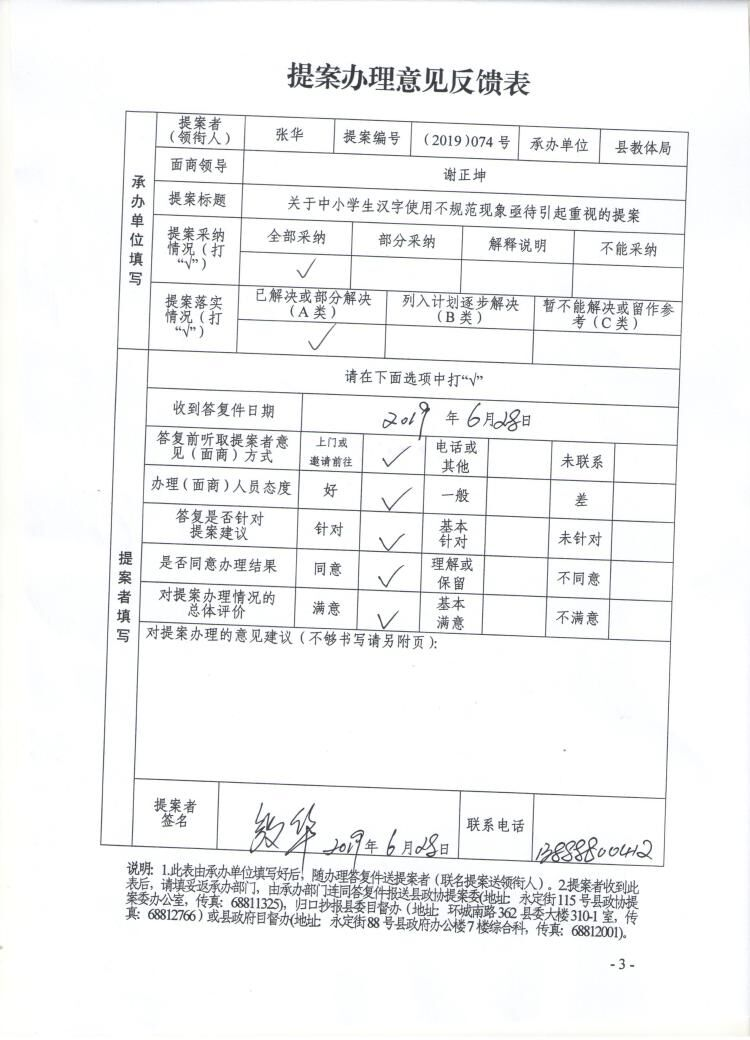 提案办理意见反馈表
承办单位填写
提案者
（领衔人）
张华
提案编号
（2019）074号
承办单位
县教体局
面商领导
谢正坤
提案标题
关于中小学生汉字使用不规范现象亟待引起重视的提案
提案采纳
情况（打
“√”）
全部采纳
部分采纳
解释说明
不能采纳
√
提案落实
情况（打
“√”）
已解决或部分解决
（A类）
列入计划逐步解决
（B类）
暂不能解决或留作参
考（C类）
√
提案者填写
请在下面选项中打“√”
收到答复件日期
2019年6月28日
答复前听取提案者意
见（面商）方式
上门或
邀请前往
√
电话或
其他
未联系
办理（面商）人员态度
好
√
一般
差
答复是否针对
提案建议
针对
√
基本
针对
未针对
是否同意办理结果
同意
√
理解或
保留
不同意
对提案办理情况的
总体评价
满意
√
基本
满意
不满意
对提案办理的意见建议（不够书写请另附页）：
提案者
签名
2019年6月28日
联系电话
13888800412
说明：1.此表由承办单位填写好后，随办理答复件送提案者（联名提案送领衔人）。2.提案者收到此
表后，请填妥返承办部门，由承办部门连同答复件报送县政协提案委(地址：永定街115号县政协提
案委办公室，传真：68811325)，归口抄报县委目督办（地址：环城南路362县委大楼310-1室，传
真：68812766）或县政府目督办(地址：永定街88号县政府办公楼7楼综合科，传真：68812001)。
- 3 -